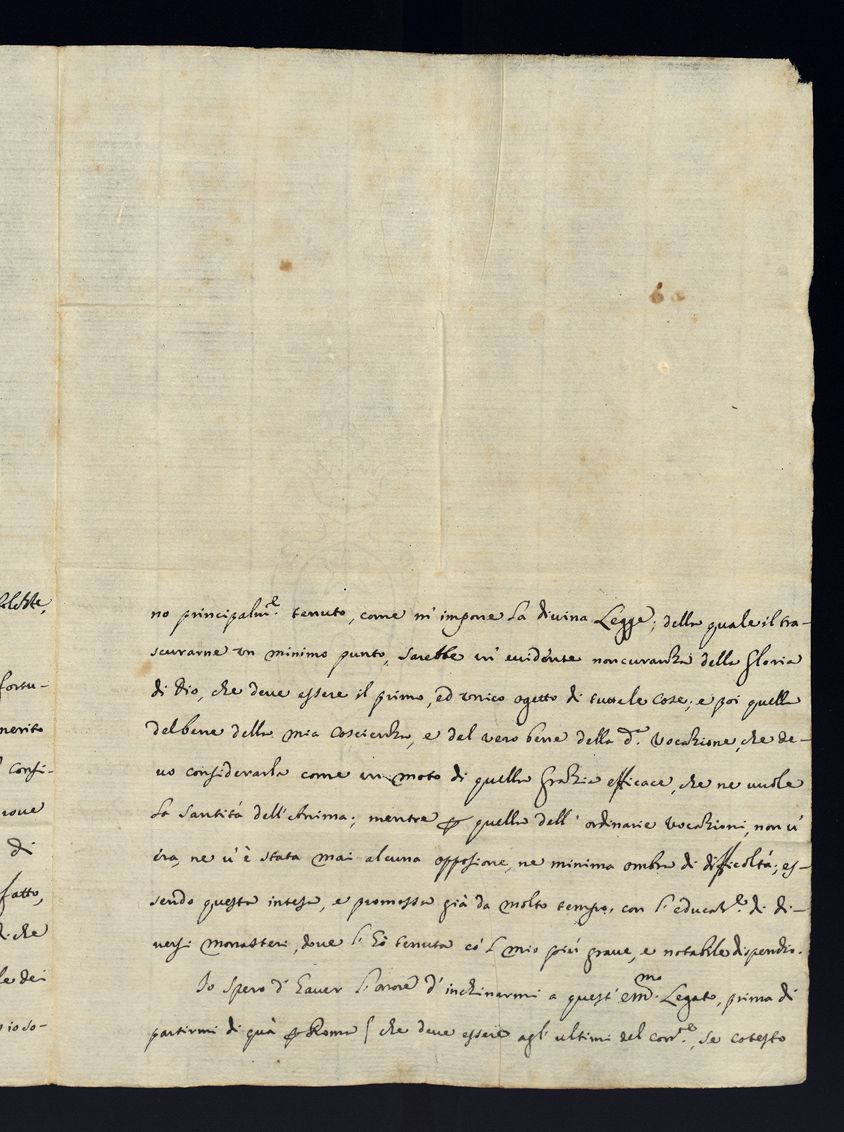 lolette,
fortu-
merito
Consi-
di
fatto,
di che
le dei
io so-
no principalm.e tenuto, come m'impone la divina Legge; della quale il tra-
scurarne un minimo punto, sarebbe un' evidente noncuranza della Gloria
di Dio, che deve essere il primo, ed unico ogetto di tutte le Cose; e poi quella
del bene della mia Coscienza, e del vero bene della d.a Vocazione, che de-
vo considerarla come un moto di quella Grazia efficace, che ne vuole
la Santità dell'Anima; mentre p quella dell' ordinarie vocazioni, non v'
era, ne v'è stata mai alcuna opposione, ne minima ombra di difficoltà; es-
sendo questa intesa, e promessa già da molto tempo, con l'educat.e di di-
versi Monasteri, dove l'hò tenuta co'l mio più grave, e notabile dispendio.
Io spero d'haver l'onore d'inchinarmi a quest' em.mo Legato, prima di
partirmi di quà p Roma ( che deve essere agl' ultimi del corr.te, se cotesto